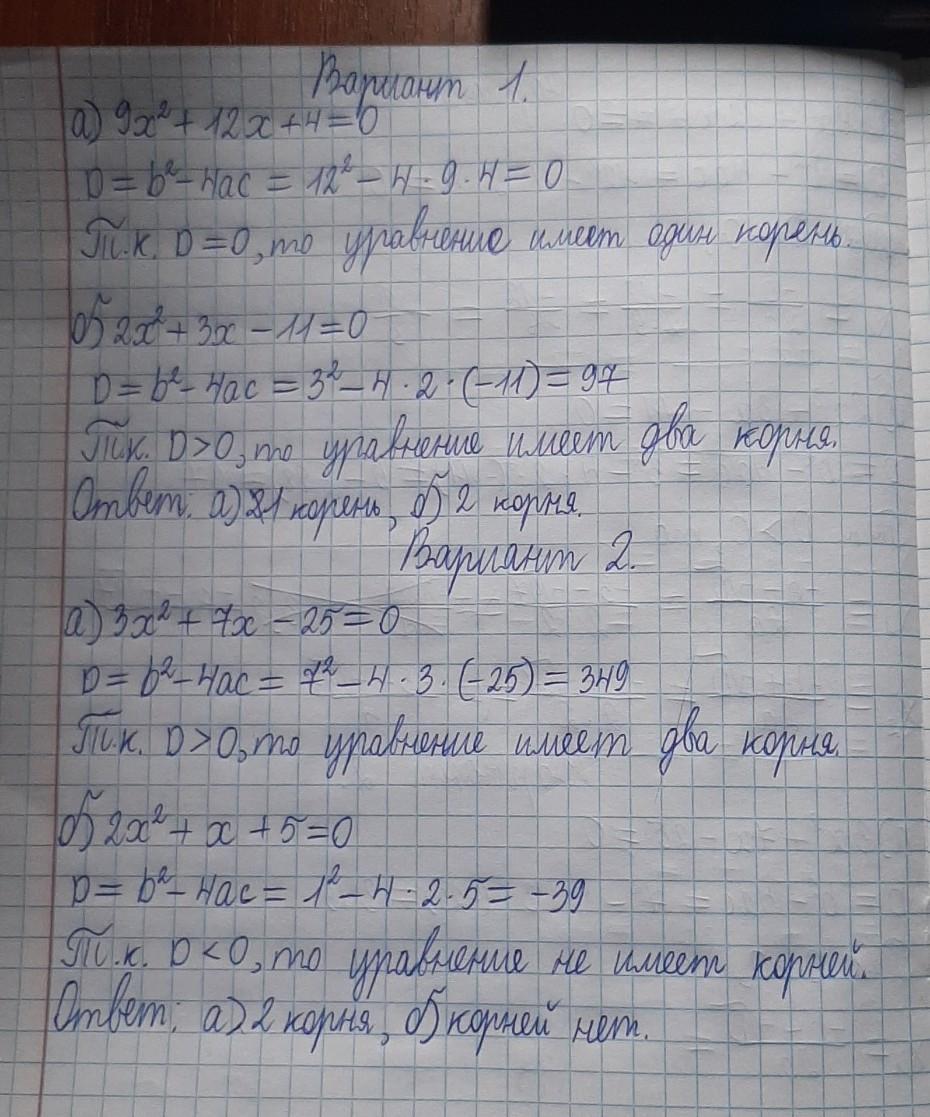 Вариант 1.
а) 9x² + 12x + 4 = 0
D = b² - 4ac = 12² - 4 · 9 · 4 = 0
Т.к. D = 0, то уравнение имеет один корень.
б) 2x² + 3x - 11 = 0
D = b² - 4ac = 3² - 4 · 2 · (-11) = 97
Т.к. D > 0, то уравнение имеет два корня.
Ответ: а) 1 корень, б) 2 корня.
Вариант 2.
а) 3x² + 7x - 25 = 0
D = b² - 4ac = 7² - 4 · 3 · (-25) = 349
Т.к. D > 0, то уравнение имеет два корня.
б) 2x² + x + 5 = 0
D = b² - 4ac = 1² - 4 · 2 · 5 = -39
Т.к. D < 0, то уравнение не имеет корней.
Ответ: а) 2 корня, б) корней нет.